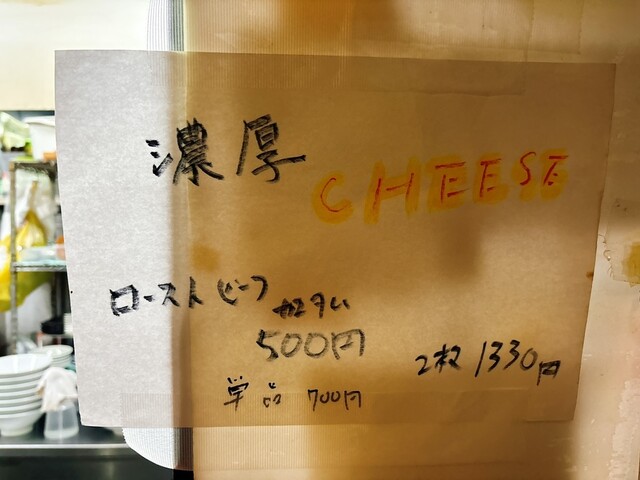 濃厚
CHEESE
ローストビーフ
500円
単品 700円
2枚 1330円